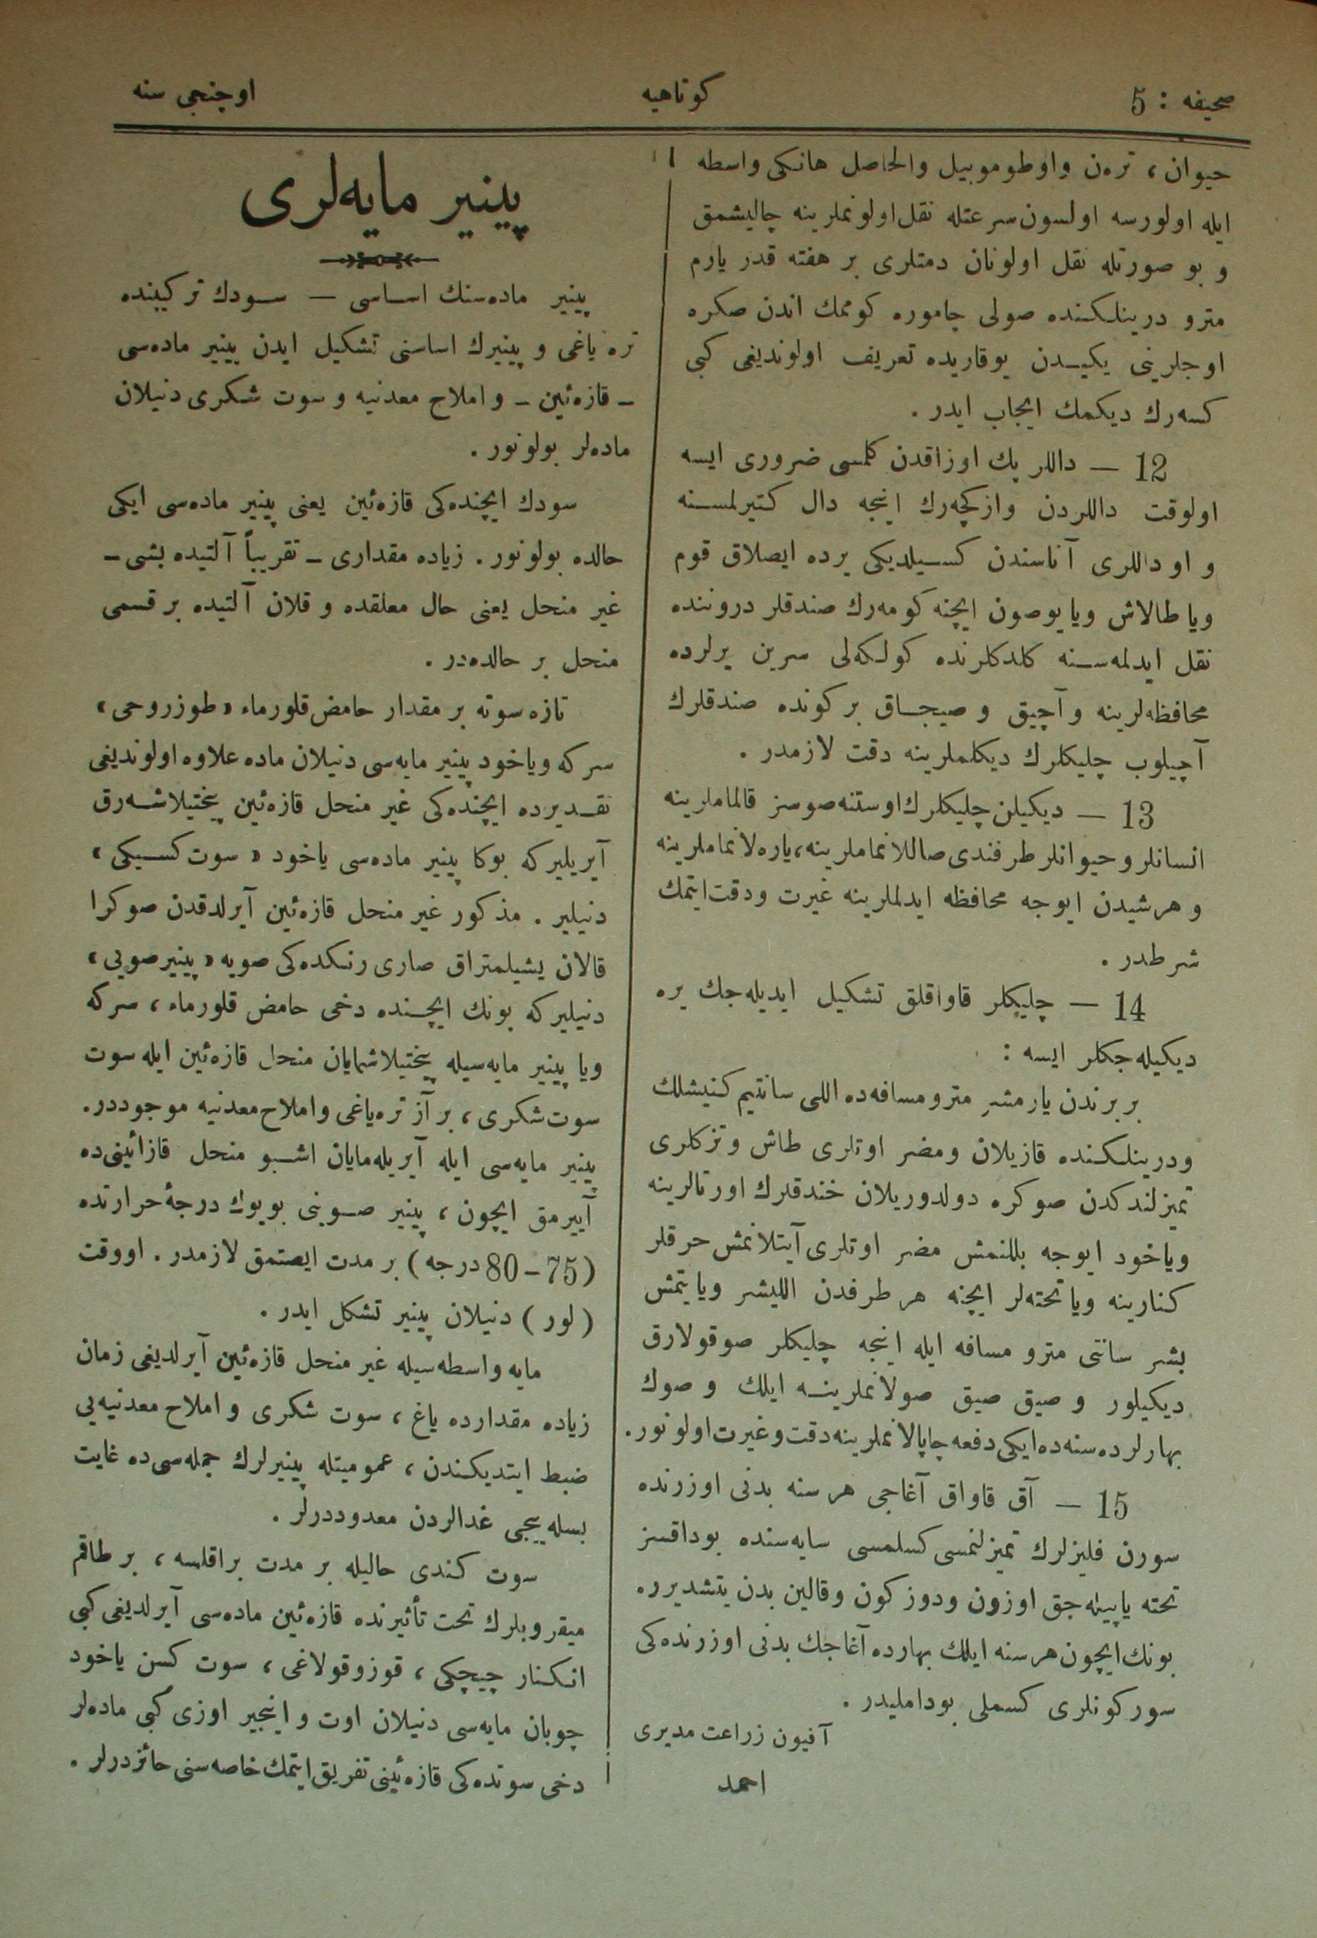 صحيفه : 5
كوتاهيه
اوچنجی سنه
حيوان ، ترەن واوطوموبيل والحاصل هانكی واسطه
ايله اولورسه اولسون سرعتله نقل اولونملرينه چاليشمق
و بو صورتله نقل اولونان دمتلری بر هفته قدر يارم
مترو درينلكنده صولی چاموره كوممك اندن صكره
اوجلرينی يكيدن يوقاريده تعريف اولونديغی كبی
كسه‌رك ديكمك ايجاب ايدر .
12 — داللر پك اوزاقدن كلمسی ضروری ايسه
اولوقت داللردن وازكچه‌رك اينجه دال كتيرلمسنه
و او داللری آناسندن كسيلديكی يرده ايصلاق قوم
ويا طالاش ويا يوصون ايچنه كومه‌رك صندقلر دروننده
نقل ايدلمه‌سنه كلدكلرنده كولكه‌لی سرين يرلرده
محافظه‌لرينه و آچيق و صيجاق بر كونده صندقلرك
آچيلوب چليكلرك ديكلملرينه دقت لازمدر .
13 — ديكيلن چليكلرك اوستنه صوسز قالماملرينه
انسانلر و حيوانلر طرفندی صاللانماملرينه، ياره‌لانماملرينه
و هرشيدن ايوجه محافظه ايدلملرينه غيرت ودقت ايتمك
شرطدر .
14 — چليكلر قاواقلق تشكيل ايديله‌جك يره
ديكيله‌جكلر ايسه :
بر برندن يارمشر مترو مسافه‌ده اللی سانتيم كنيشلك
ودرينلكنده قازيلان ومضر اوتلری طاش وتزكلری
تميزلندكدن صوكره دولدوريلان خندقلرك اورتالرينه
وياخود ايوجه بللنمش مضر اوتلری آيتلانمش حرقلر
كنارينه ويا تخته‌لر ايچنه هر طرفدن الليشر ويا يتمش
بشر سانتی مترو مسافه ايله اينجه چليكلر صوقولارق
ديكيلور و صيق صيق صولانملرينه ايلك و صوك
بهارلرده سنه‌ده ايكی دفعه چاپالانملرينه دقت وغيرت اولونور.
15 — آق قاواق آغاجی هر سنه بدنی اوزرنده
سورن فليزلرك تميزلنمسی كسلمسی سايه‌سنده بوداقسز
تخته ياپيله‌جق اوزون ودوزكون وقالين بدن يتشديرر.
بونك ايچون هر سنه ايلك بهارده آغاجك بدنی اوزرنده‌كی
سوركونلری كسملی بوداملیدر .
آفيون زراعت مديری
احمد
پينير مايه‌لری
پينير ماده‌سنك اساسی — سودك تركيبنده
تره ياغی و پينيرك اساسنی تشكيل ايدن پينير ماده‌سی
ـ قازه‌ئين ـ و املاح معدنيه و سوت شكری دنيلان
ماده‌لر بولونور .
سودك ايچنده‌كی قازه‌ئين يعنی پينير ماده‌سی ايكی
حالده بولونور . زياده مقداری ـ تقريباً آلتيده بشی ـ
غير منحل يعنی حال معلقده و قلان آلتيده بر قسمی
منحل بر حالده‌در .
تازه سوته بر مقدار حامض قلورماء «طوزروحی»
سركه وياخود پينير مايه‌سی دنيلان ماده علاوه اولونديغی
تقديرده ايچنده‌كی غير منحل قازه‌ئين پيختيلاشه‌رق
آيريليركه بوكا پينير ماده‌سی ياخود «سوت كسيكی»
دنيلير . مذكور غير منحل قازه‌ئين آيرلدقدن صوكرا
قالان يشيلمتراق صاری رنكده‌كی صويه «پينيرصويی»
دنيليركه بونك ايچنده دخی حامض قلورماء ، سركه
ويا پينير مايه‌سيله پيختيلاشمايان منحل قازه‌ئين ايله سوت
سوت شكری ، بر آز تره‌ياغی و املاح معدنيه موجوددر.
پينير مايه‌سی ايله آيريله‌مايان اشبو منحل قازائينی‌ده
آييرمق ايچون ، پينير صوينی بويوك درجهٔ حرارتده
(75-80 درجه) بر مدت ايصتمق لازمدر . اووقت
( لور ) دنيلان پينير تشكل ايدر .
مايه واسطه‌سيله غير منحل قازه‌ئين آيرلديغی زمان
زياده مقدارده ياغ ، سوت شكری و املاح معدنيه‌يی
ضبط ايتديكندن ، عموميتله پينيرلرك جمله‌سی‌ده غايت
بسله‌ييجی غدالردن معدوددرلر .
سوت كندی حاليله بر مدت براقلسه ، بر طاقم
ميقروبلرك تحت تأثيرنده قازه‌ئين ماده‌سی آيرلديغی كبی
انكنار چيچكی ، قوزوقولاغی ، سوت كسن ياخود
چوبان مايه‌سی دنيلان اوت و اينجير اوزی كبی ماده‌لر
دخی سوتده‌كی قازه‌ئينی تفريق ايتمك خاصه‌سنی حائزدرلر .